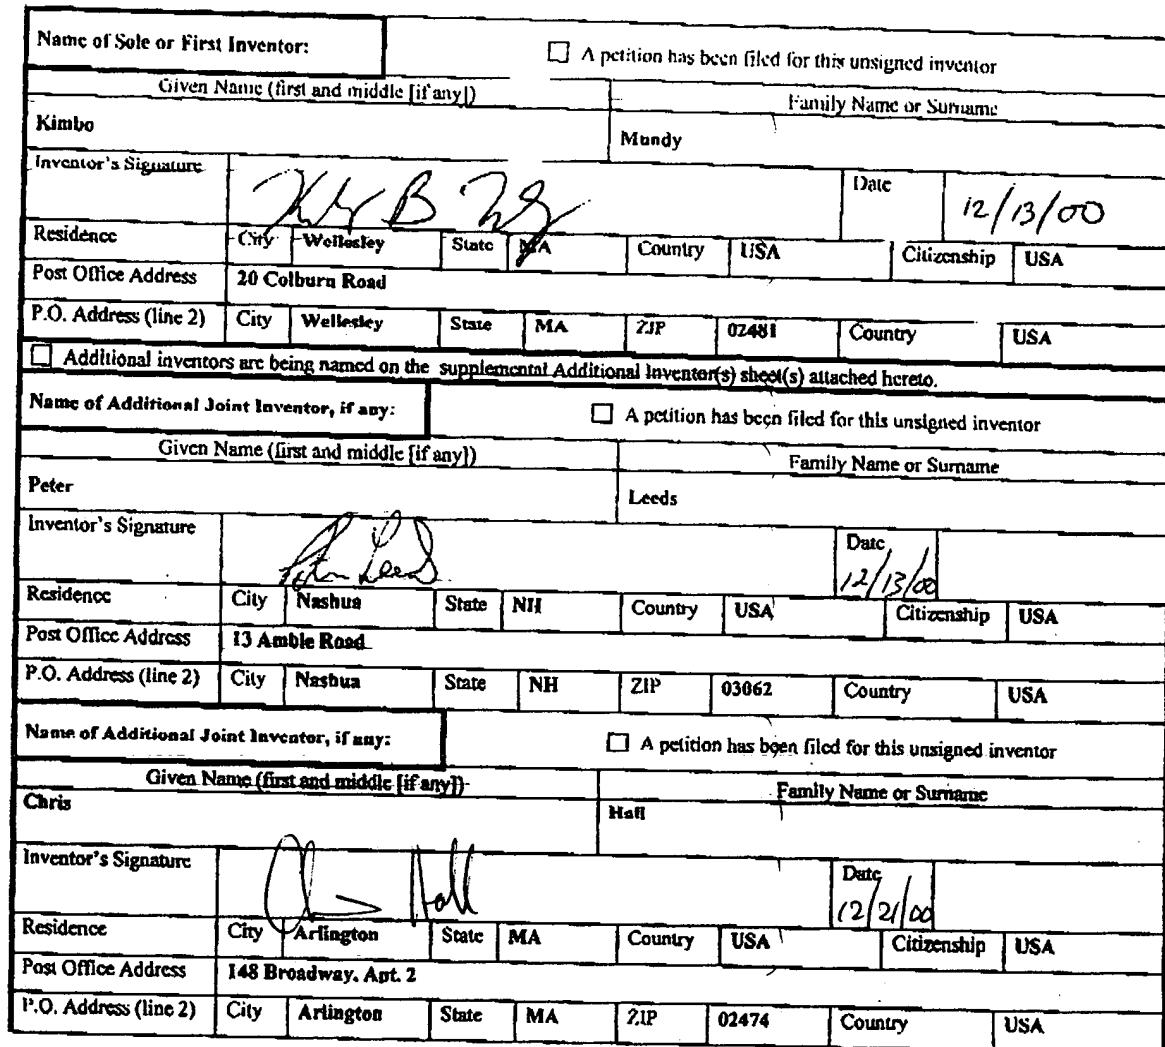 Name of Sole or First Inventor: ☐ A petition has been filed for this unsigned inventor
Given Name (first and middle [if any]) Family Name or Surname
Kimbo Mundy
Inventor's Signature Date 12/13/00
Residence City Wellesley State MA Country USA Citizenship USA
Post Office Address 20 Colburn Road
P.O. Address (line 2) City Wellesley State MA ZIP 02481 Country USA
☐ Additional inventors are being named on the supplemental Additional Inventor(s) sheet(s) attached hereto.
Name of Additional Joint Inventor, if any: ☐ A petition has been filed for this unsigned inventor
Given Name (first and middle [if any]) Family Name or Surname
Peter Leeds
Inventor's Signature Peter Leeds Date 12/13/00
Residence City Nashua State NH Country USA Citizenship USA
Post Office Address 13 Amble Road
P.O. Address (line 2) City Nashua State NH ZIP 03062 Country USA
Name of Additional Joint Inventor, if any: ☐ A petition has been filed for this unsigned inventor
Given Name (first and middle [if any]) Family Name or Surname
Chris Hall
Inventor's Signature Chris Hall Date 12/21/00
Residence City Arlington State MA Country USA Citizenship USA
Post Office Address 148 Broadway, Apt. 2
P.O. Address (line 2) City Arlington State MA ZIP 02474 Country USA